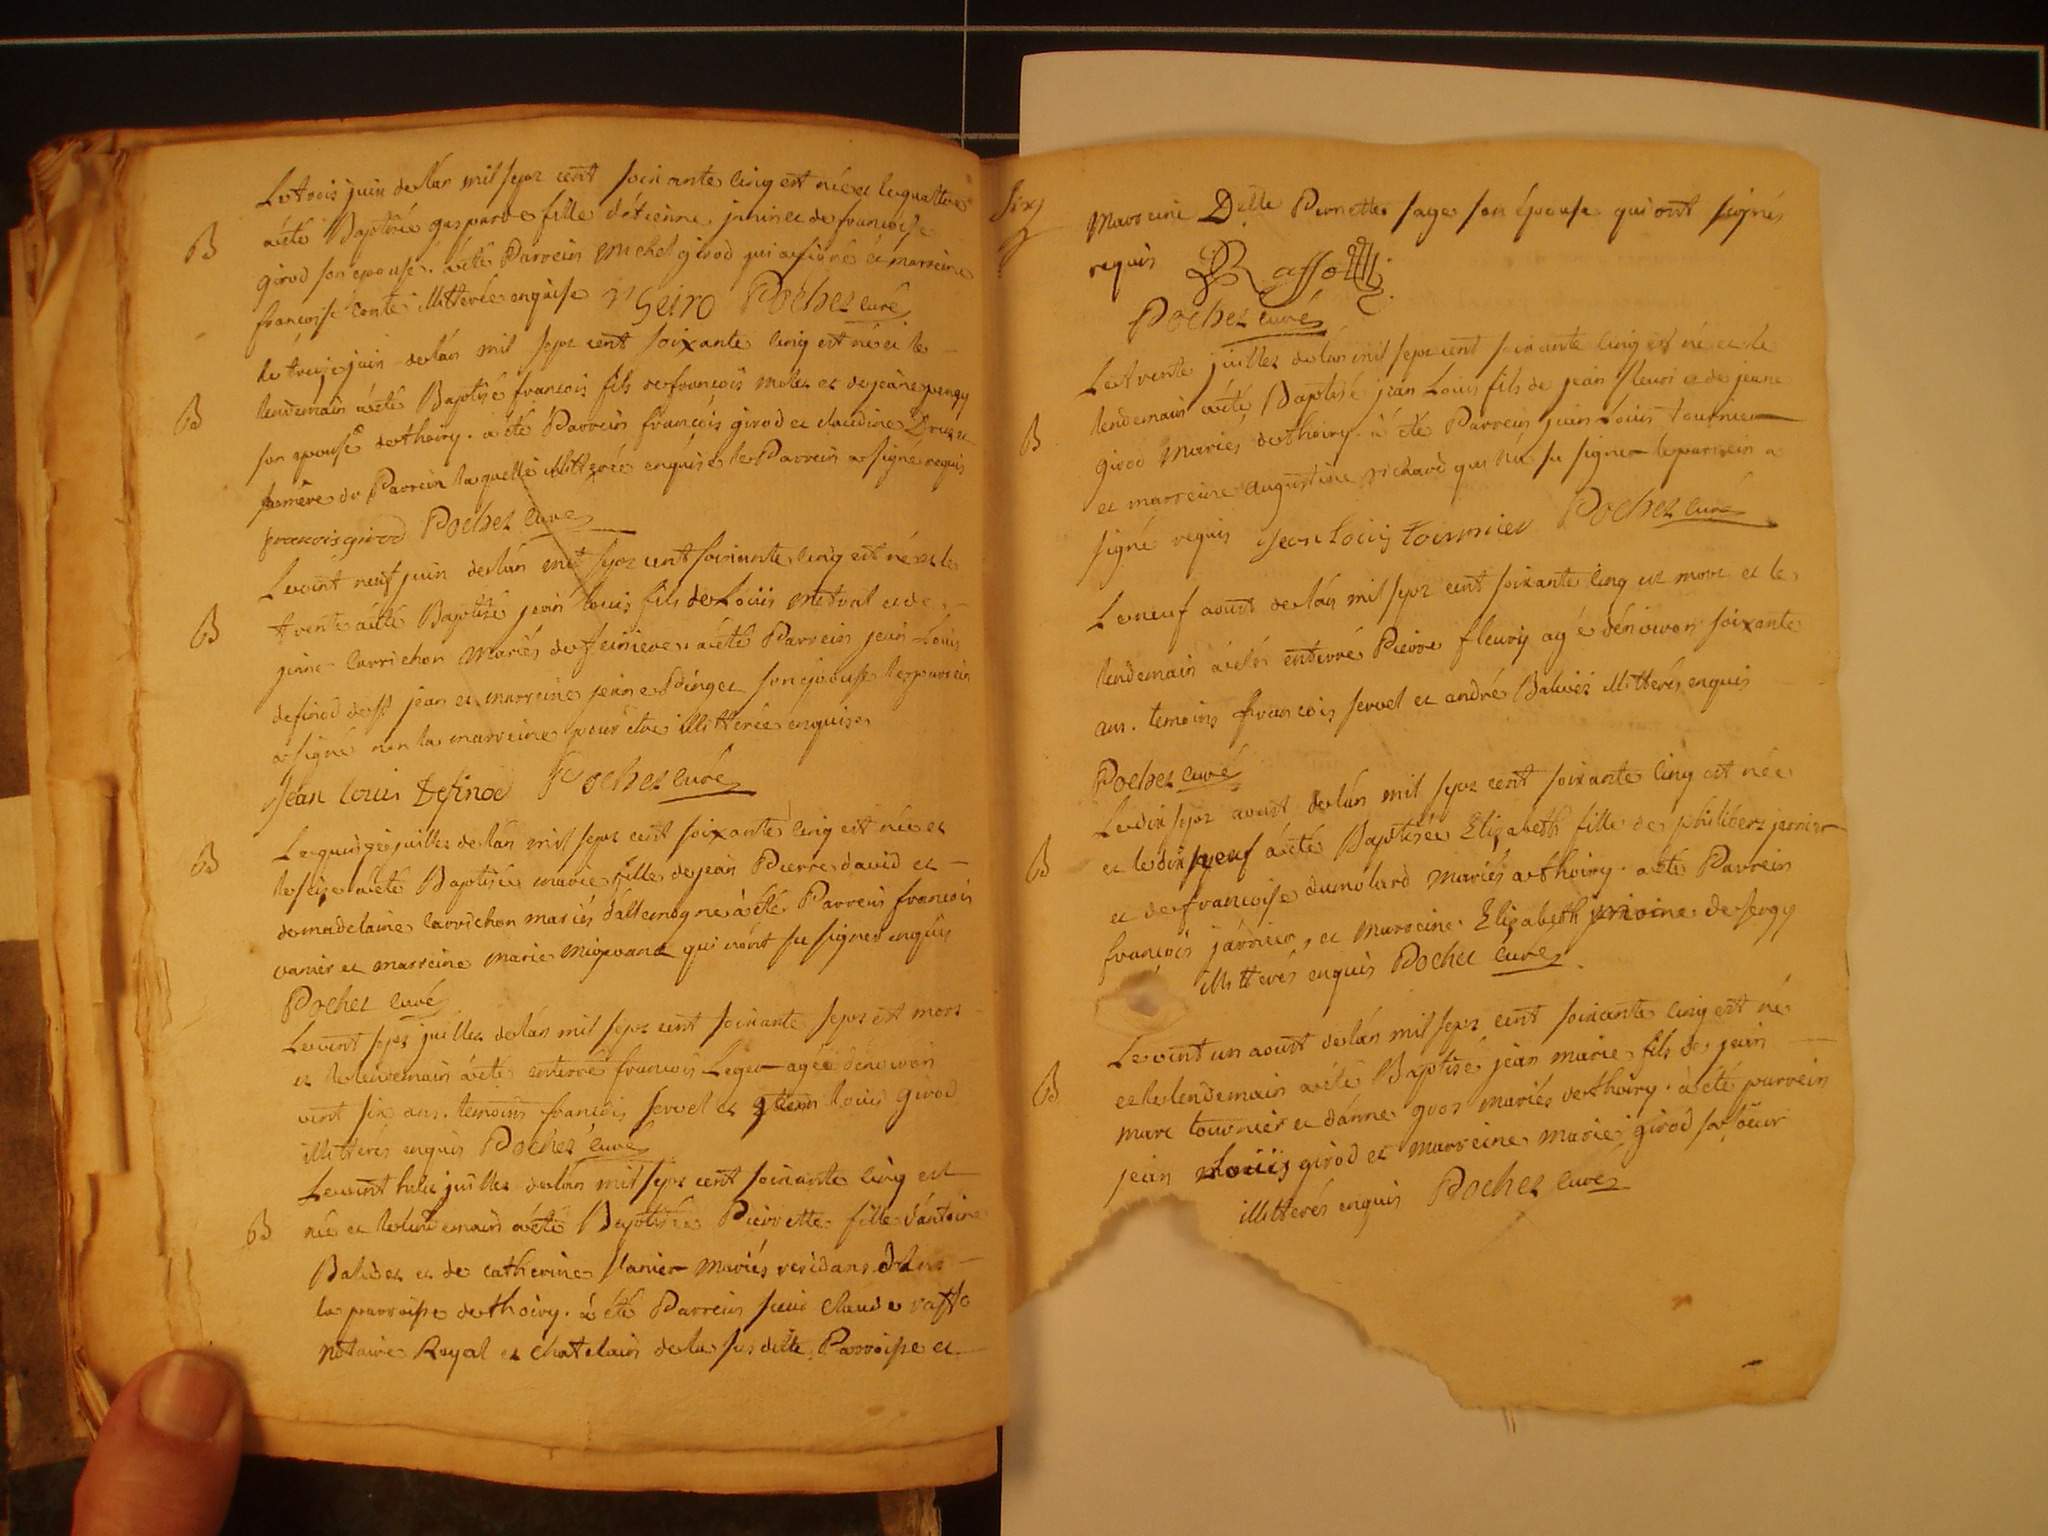 Le trois juin de l'an mil sept cent soixante cinq est née et le quattre
B
a été Baptisée gasparde fille d'étienne janin et de francoise
girod son epouse. a été Parrein michel girod qui a signé et marreine
francoise conte illitterée enquise Pochet curé
Le treize juin de l'an mil sept cent soixante cinq est né et le
B
lendemain a été Baptisé francois fils de francois molex et de jeane
son epouse de thoiry. a été Parrein francois girod et claudine
la mère du Parrein laquelle illitterée enquise le Parrein a signé requis
francois girod Pochet curé
Le vint neuf juin de l'an mil sept cent soixante cinq est né et le
B
trente a été Baptisé jean louis fils de Louis et de
jeane carrichon Mariés de feiniere. a été Parrein jean Louis
definod de St jean et marreine jeane son epouse le parrein
a signé non la marreine pour etre illitterée enquise
Jean louis Definod Pochet curé
Le quinze juillet de l'an mil sept cent soixante cinq est née et
B
le seize a été Baptisée marie fille de jean Pierre david et
de madelaine carrichon mariés d'allemogne a été Parrein francois
vanier et marreine marie qui n'ont su signer enquis
Pochet curé
Le vint sept juillet de l'an mil sept cent soixante sept est mort
et le lendemain a été enterré francois Leger agée d'environ
vint six ans. temoins francois servel et jean louis Girod
illitterés enquis Pochet curé
Le vint huit juillet de l'an mil sept cent soixante cinq est
B
née et le lendemain a été Baptisée Pierrette fille d'antoine
Balivet et de catherine vanier Mariés residans dans
la parroisse de thoiry. a été Parrein sieur Claude raffo
notaire Royal et chatelain de la susditte Parroisse et
six
Marreine Delle Pernette sage son épouse qui ont signés
requis Raffo
Pochet curé
Le trente juillet de l'an mil sept cent soixante cinq est né et le
B
lendemain a été Baptisé jean Louis fils de jean fleuri et de jeane
girod Mariés de thoiry. a été Parrein jean Louis tournier
et marreine augustine richard qui n'a su signer le parrein a
signé requis Jean Louis tournier Pochet curé
Le neuf aoust de l'an mil sept cent soixante cinq est mort et le
lendemain a été enterré Pierre fleury agé d'environ soixante
ans. temoins francois servel et andré Balivet illitterés enquis
Pochet curé
Le dix sept aoust de l'an mil sept cent soixante cinq est née
B
et le dix neuf a été Baptisée Elizabeth fille de philibert jarrier
et de francoise dumolard mariés a thoiry. a été Parrein
francois jarrier, et marreine Elizabeth de sergy
illitterés enquis Pochet curé
Le vint un aoust de l'an mil sept cent soixante cinq est né
B
et le lendemain a été Baptisé jean marie fils de jean
marc tournier et d'anne gros mariés de thoiry. a été parrein
jean Louis girod et marreine marie girod sa soeur
illitterés enquis Pochet curé